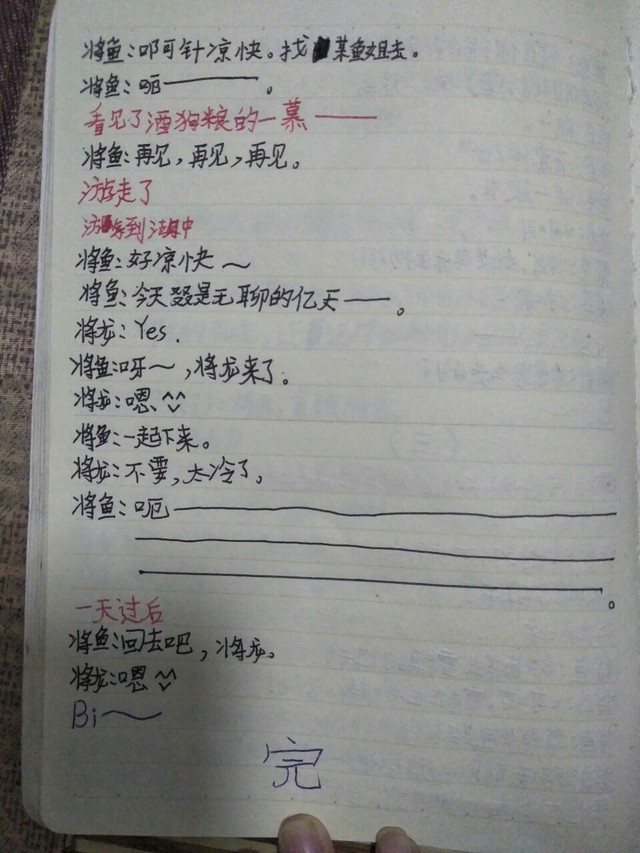 将鱼:叩可针凉快。找菜鱼姐去。
将鱼:呃——。
看见了酒狗粮的一慕——
将鱼:再见,再见,再见。
游走了
游到湖中
将鱼:好凉快~
将鱼:今天又是无聊的亿天——。
将龙:Yes.
将鱼:呀~,将龙来了。
将龙:嗯^^
将鱼:一起下来。
将龙:不要,太冷了。
将鱼:呃——————。
一天过后
将鱼:回去吧,将龙。
将龙:嗯^^
Bi~
完